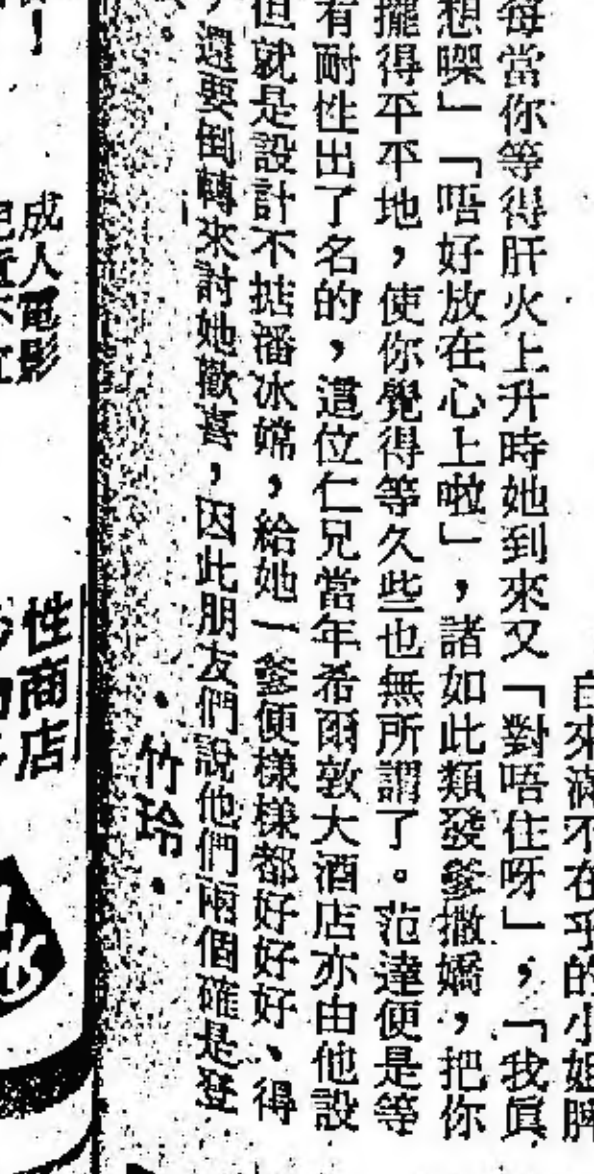 自來滿不在乎的小姐脾
每當你等得肝火上升時她到來又「對唔住呀」，「我眞
想㗎」「唔好放在心上啦」，諸如此類發爹撒嬌，把你
擺得平平地，使你覺得等久些也無所謂了。范達便是等
有耐性出了名的，這位仁兄當年希爾敦大酒店亦由他設
但就是設計不掂潘冰嫦，給她一爹便樣樣都好好好、得
還要倒轉來討她歡喜，因此朋友們說他們兩個確是登
•竹玲•
成人電影
性商店